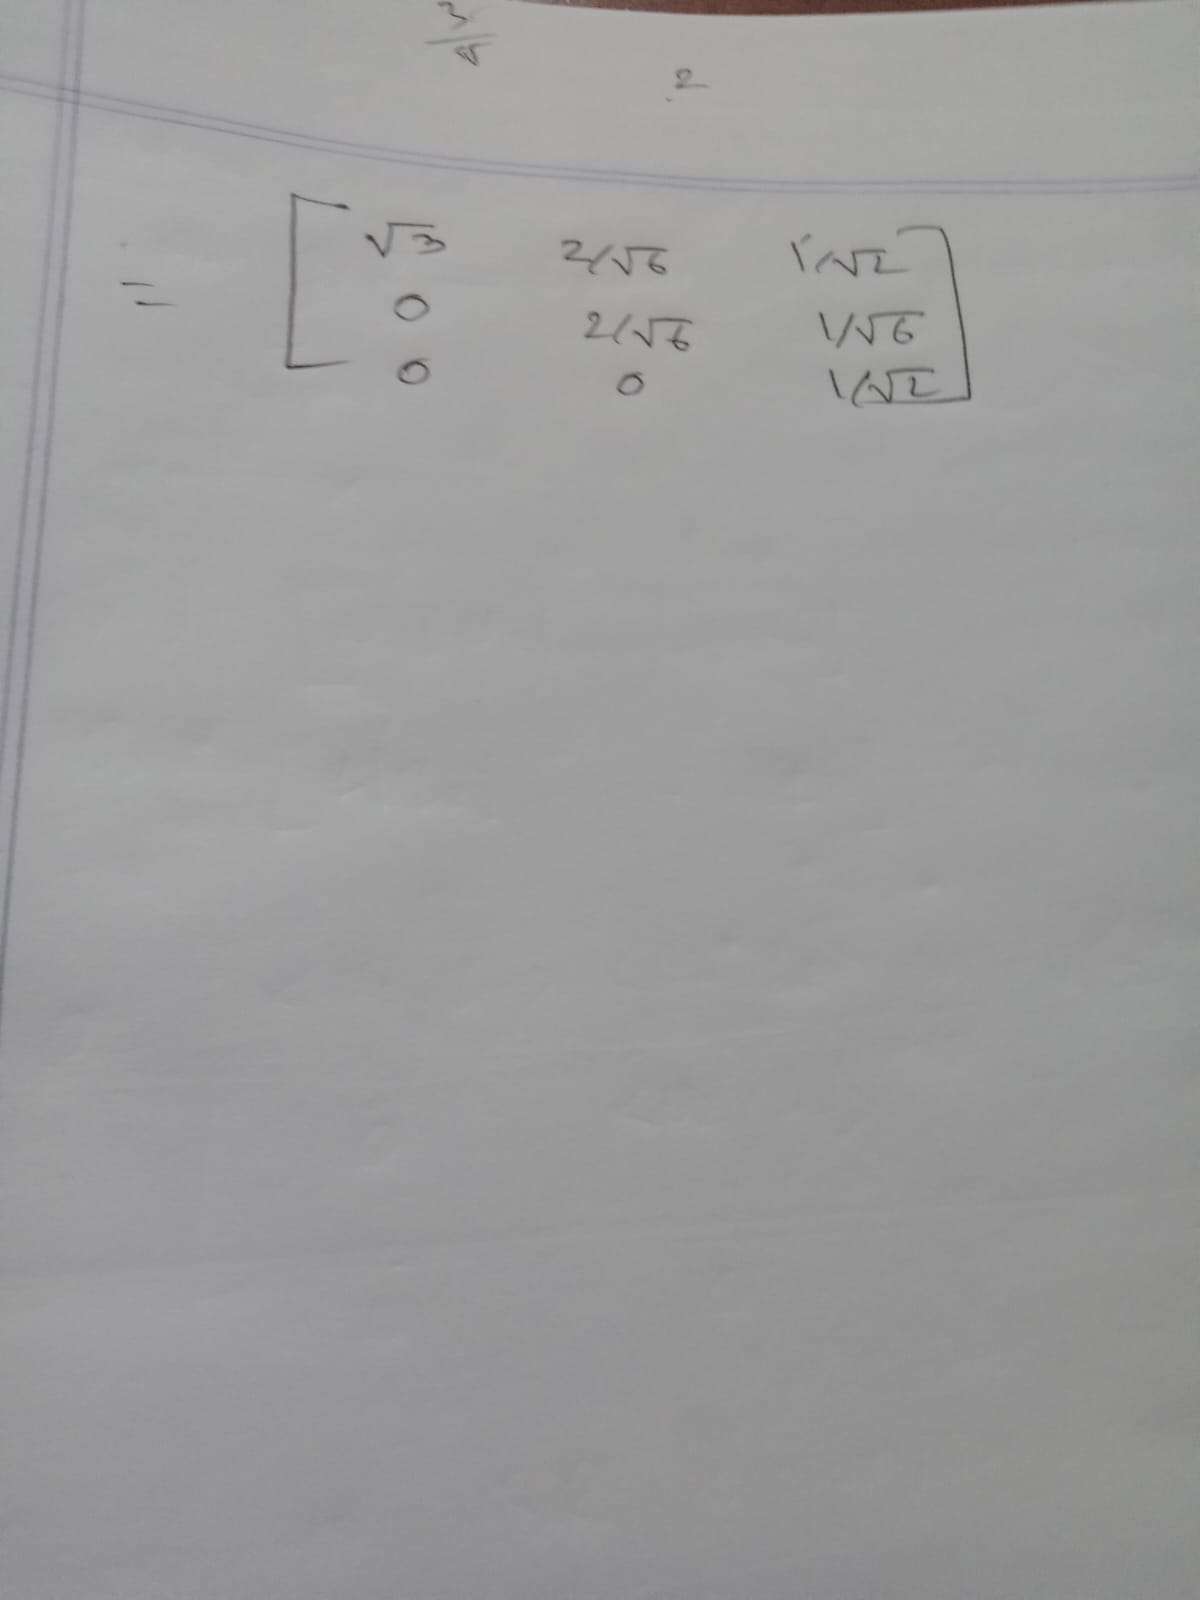 3
2
= [ √3 2/√6 1/√2 ]
0 2/√6 1/√6
0 0 1/√2